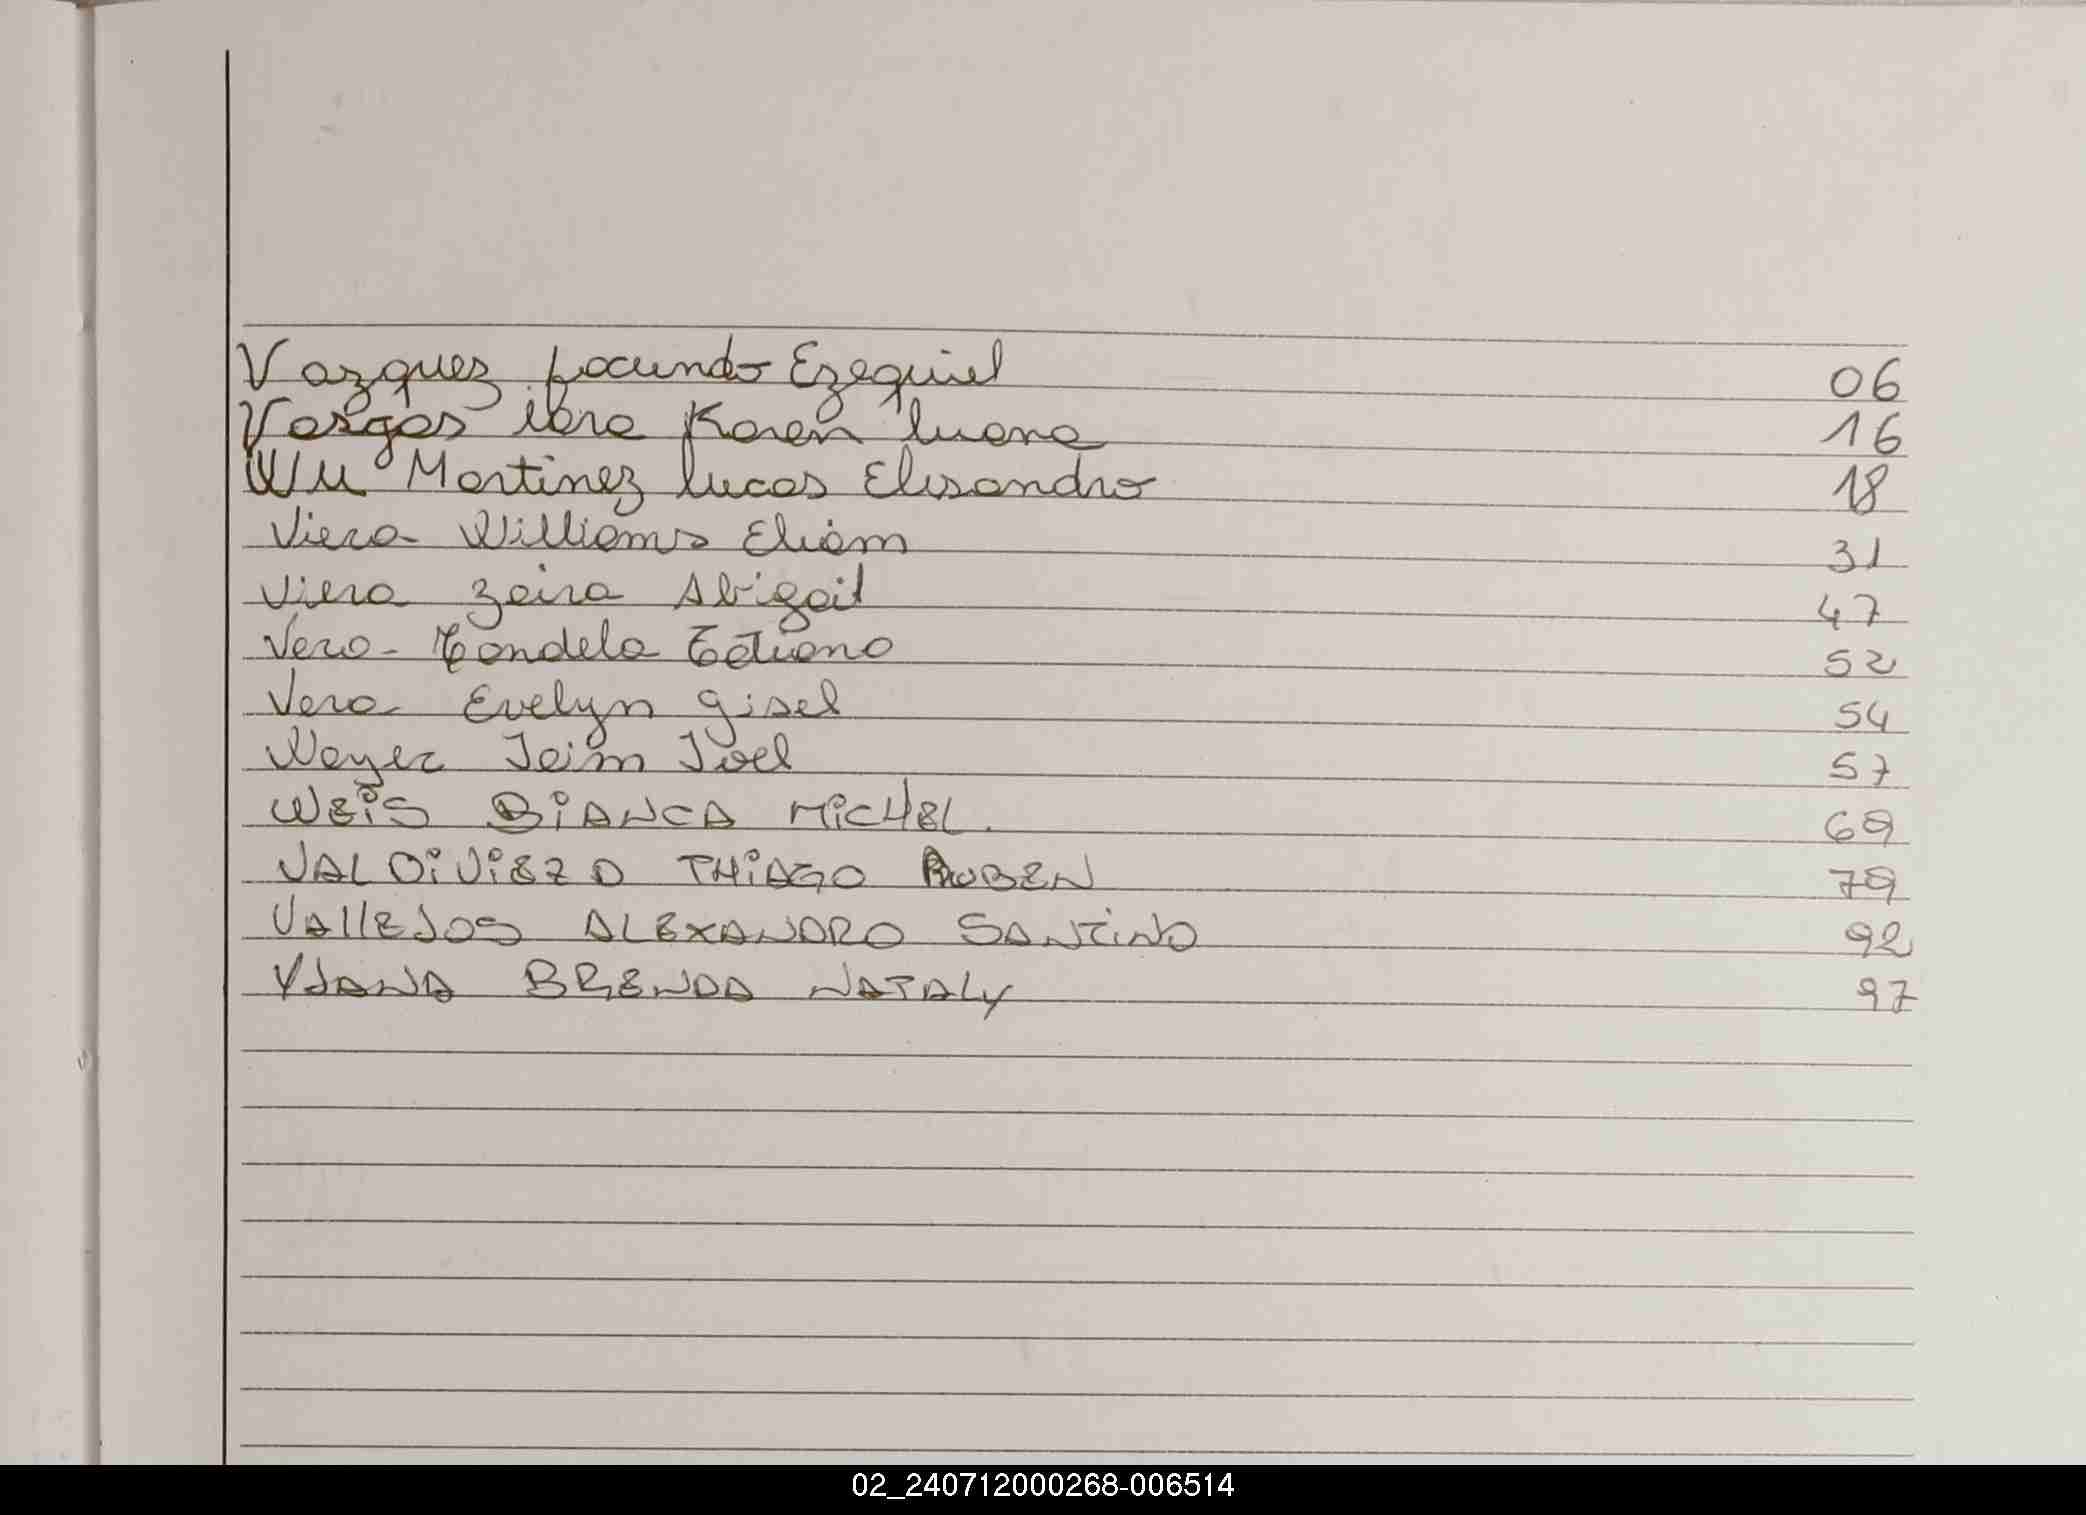 Vazquez facundo Ezequiel 06
Vargas iara Karen luana 16
Wu Martinez lucas Elisandro 18
Viera Williams Eliam 31
Viera Zaira Abigail 47
Vera Candela 52
Vera Evelyn gisel 54
Weyer Jaim Joel 57
WEIS BIANCA MICHEL. 69
VALDIVIEZO THIAGO RUBEN 79
VALLEJOS ALEXANDRO SANTINO 92
BRENDA NATALY 97
02_240712000268-006514